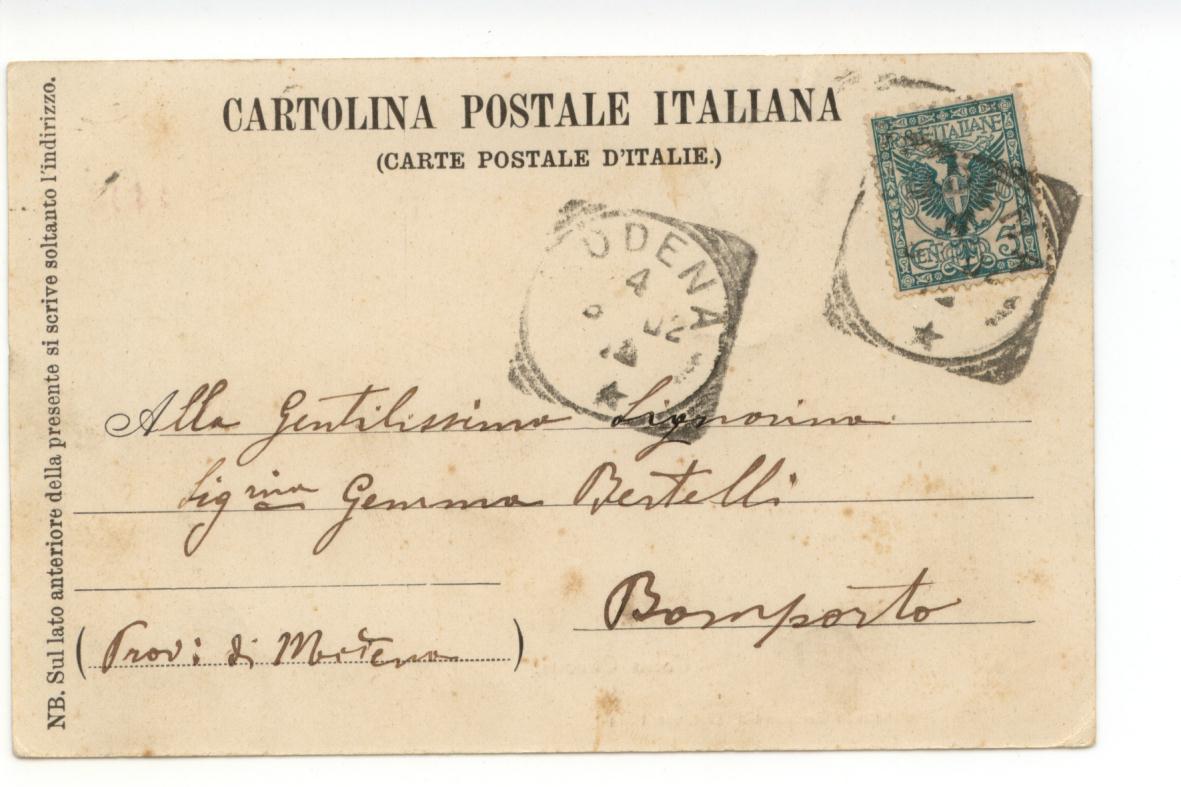 CARTOLINA POSTALE ITALIANA
(CARTE POSTALE D'ITALIE.)
POSTE ITALIANE
CENT. 5
ODENA
4
02
Alla Gentilissima Signorina
Sigrina Gemma Bertelli
Bomporto
(Prov: di Modena)
NB. Sul lato anteriore della presente si scrive soltanto l'indirizzo.